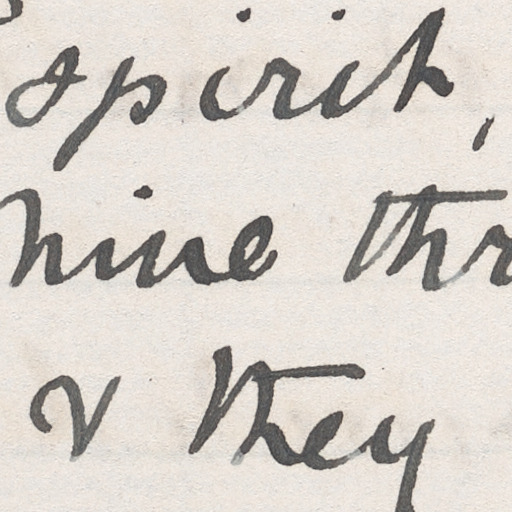 spirit,
hine thr
& they